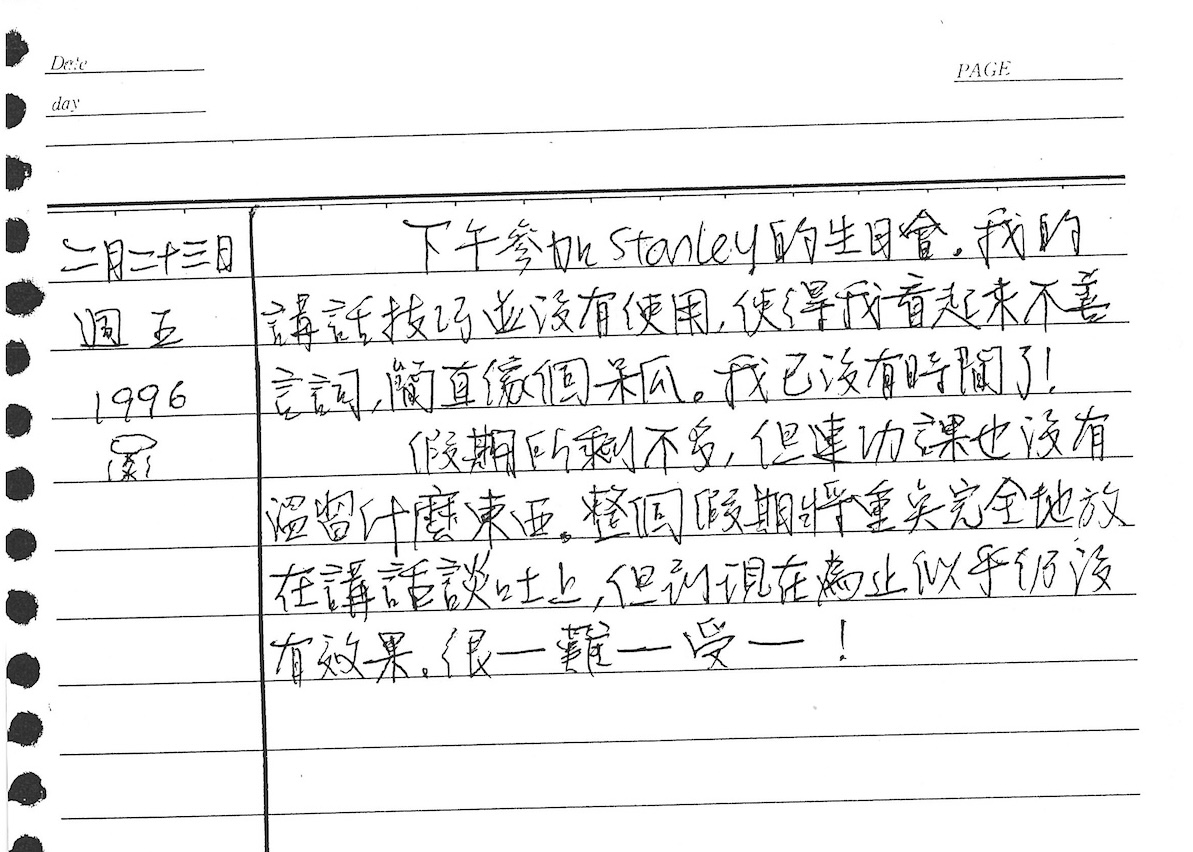 Date
PAGE
day
二月二十三日
週五
1996
下午參加Stanley的生日會。我的
講話技巧並沒有使用，使得我看起來不善
言詞，簡直像個呆瓜。我已沒有時間了！
假期所剩不多，但連功課也沒有
溫習什麼東西。整個假期將重點完全地放
在講話談吐上，但到現在為止似乎仍沒
有效果。很一難一受一！